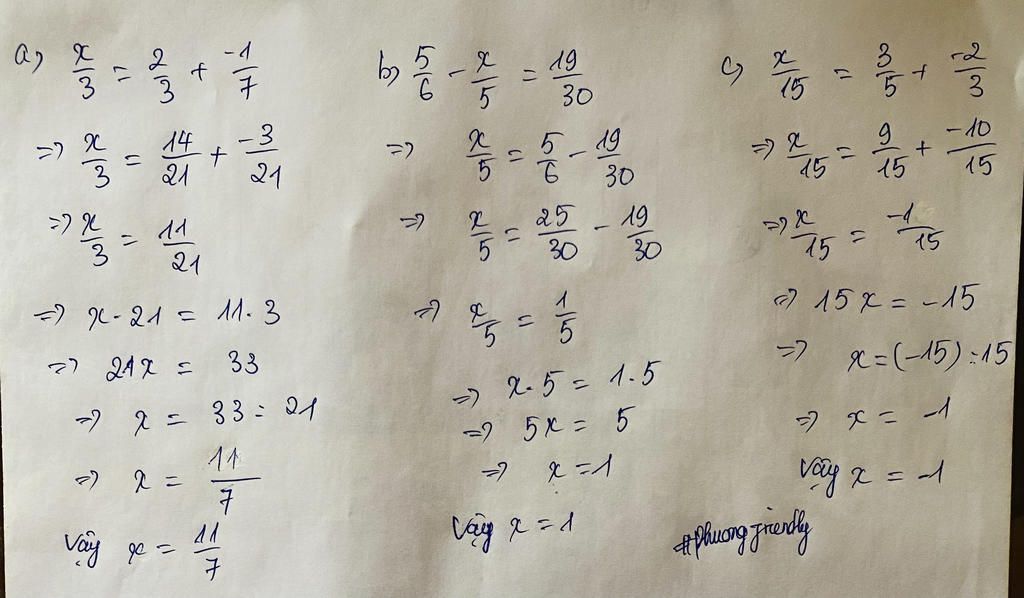 a) x/3 = 2/3 + -1/7
=> x/3 = 14/21 + -3/21
=> x/3 = 11/21
=> x . 21 = 11 . 3
=> 21x = 33
=> x = 33 : 21
=> x = 11/7
Vậy x = 11/7
b) 5/6 - x/5 = 19/30
=> x/5 = 5/6 - 19/30
=> x/5 = 25/30 - 19/30
=> x/5 = 1/5
=> x . 5 = 1 . 5
=> 5x = 5
=> x = 1
Vậy x = 1
c) x/15 = 3/5 + -2/3
=> x/15 = 9/15 + -10/15
=> x/15 = -1/15
=> 15x = -15
=> x = (-15) : 15
=> x = -1
Vậy x = -1
#phuongfriendly